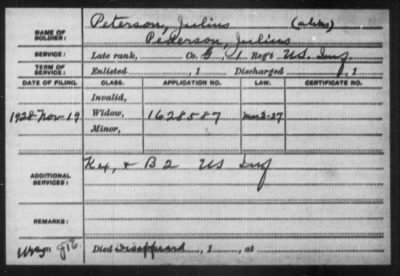 NAME OF SOLDIER: Peterson, Julius (alias)
Pederson, Julius
SERVICE: Late rank, Co. G, 1 Reg't U.S. Inf.
TERM OF SERVICE: Enlisted , 1 Discharged , 1
DATE OF FILING. CLASS. APPLICATION NO. LAW. CERTIFICATE NO.
Invalid,
1928-Nov-19 Widow, 1628587 Mar 3-27
Minor,
ADDITIONAL SERVICES: K 4, & B 2 US Inf
REMARKS:
Died Disappeared, 1 , at